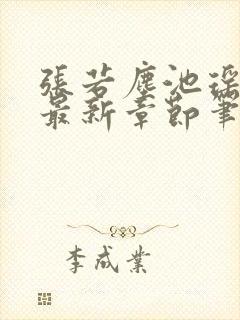 張若塵池瑤
最新章節筆
李成業